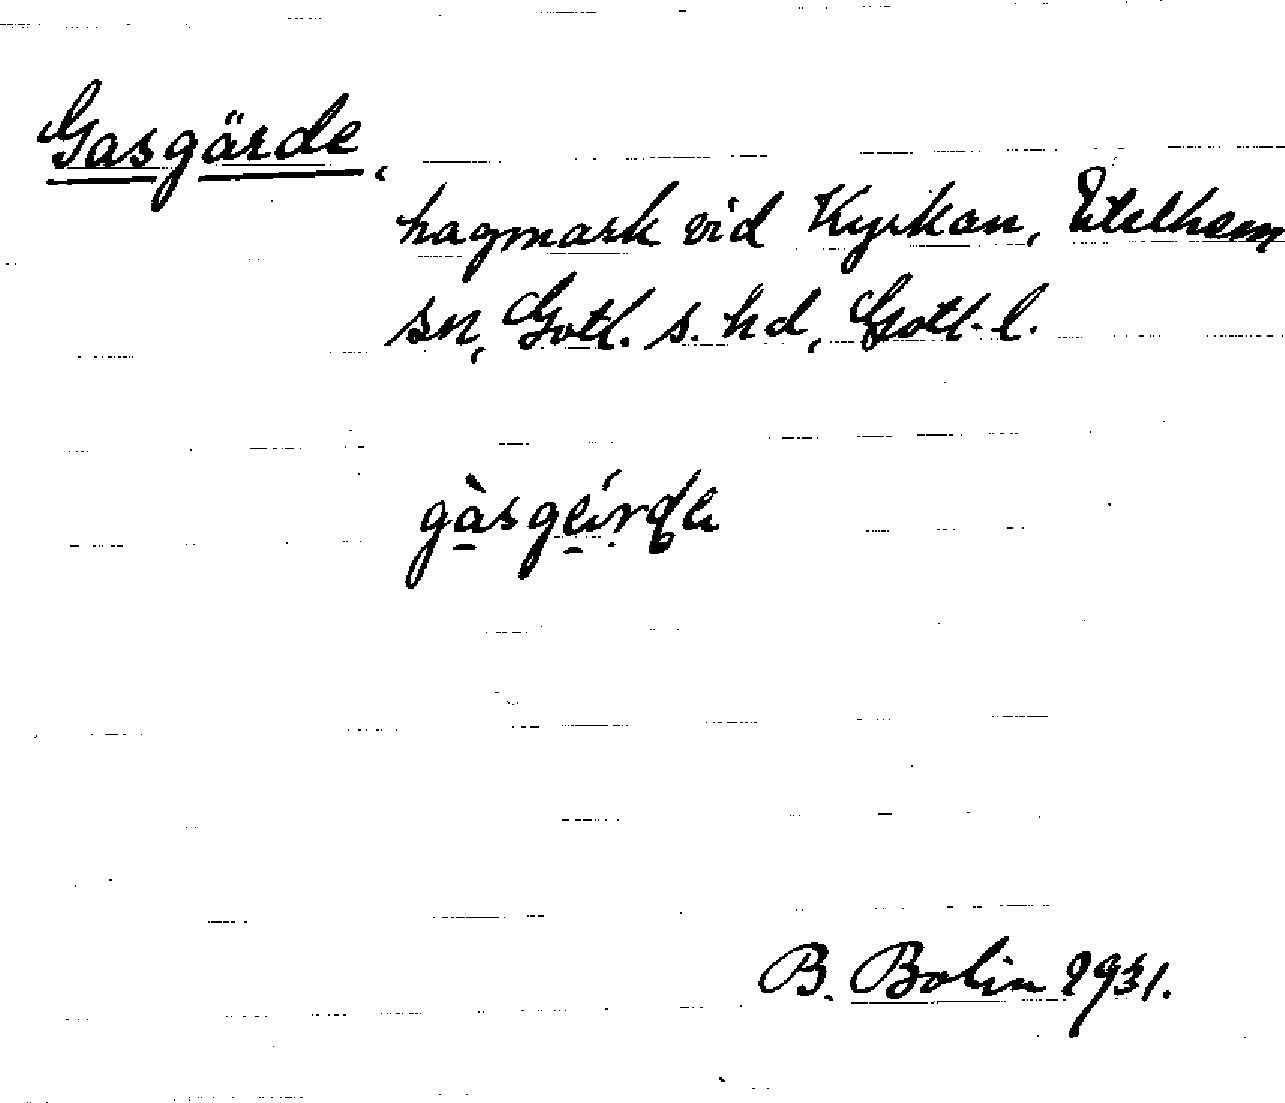 Gasgärde,
hagmark vid Kyrkan, Etelhem
sn, Gotl. s. hd, Gotl. l.
B. Bolin 1931.